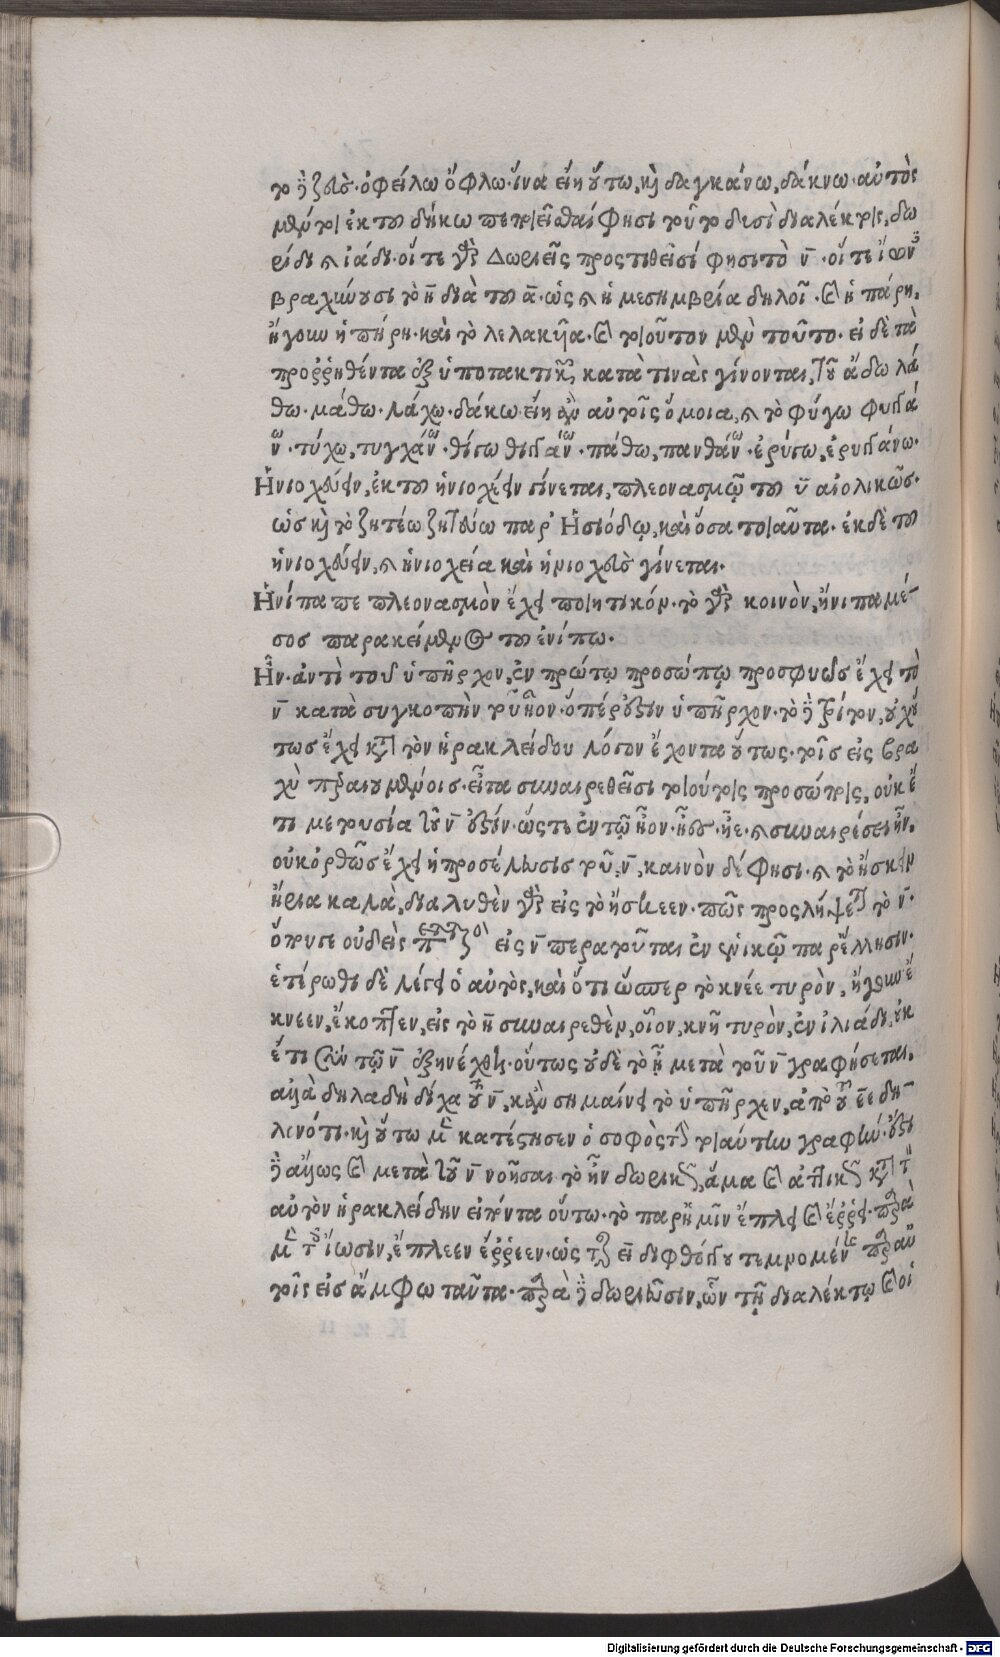 το γὰρ ζεῖς. ὀφείλω ὄφλω. ἵνα εἴη οὕτω, καὶ δαγκάνω, δάκνω. αὐτὸς
μέντοι ἐκ τοῦ δήκω πεποιεῖσθαί φησι τοῦτο δυσὶ διαλέκτοις, δω
ρίδι καὶ ἰάδι. οἵ τε γὰρ Δωριεῖς προστιθεῖσί φησι τὸ ν̄. οἵ τε ἴωνες
βραχύνουσι τὸ η̄ διὰ τοῦ ᾱ. ὡς καὶ ἡ μεσημβρία δηλοῖ. καὶ ἡ πάρη,
ἤγουν ἡ πήρη. καὶ τὸ λελακυῖα. καὶ τοιοῦτον μὲν τοῦτο. εἰ δὲ τὰ
προῤῥηθέντα ἐξ ὑποτακτικῶν κατὰ τινὰς γίνονται, τοῦ ἅδω λά
θω. μάθω. λάχω. δάκω. εἴη ἂν αὐτοῖς ὅμοια, καὶ τὸ φύγω φυγγά
νω. τύχω, τυγχάνω. θίγω θιγγάνω. πάθω, πανθάνω. ἐρύγω, ἐρυγγάνω.
Ἡνιοχεύειν, ἐκ τοῦ ἡνιοχέειν γίνεται, πλεονασμῷ τοῦ ῡ αἰολικῶς.
ὡς καὶ τὸ ζητέω ζητεύω παρ' Ἡσιόδῳ, καὶ ὅσα τοιαῦτα. ἐκ δὲ τοῦ
ἡνιοχεύειν, καὶ ἡνιοχεία καὶ ἡνιοχεὺς γίνεται.
Ἠνίπαπε πλεονασμὸν ἔχει ποιητικόν. τὸ γὰρ κοινὸν, ἤνιπα μέ-
σος παρακείμενος τοῦ ἐνίπω.
Ἦν. ἀντὶ τοῦ ὑπῆρχον, ἐν πρώτῳ προσώπῳ προσφυῶς ἔχει τὸ
ν̄ κατὰ συγκοπὴν τοῦ ἦον. ὅπέρ ἐστιν ὑπῆρχον. τὸ δὲ τρίτον, οὐχ οὕ
τως ἔχει κατὰ τὸν ἡρακλείδου λόγον ἔχοντα οὕτως. τοῖς εἰς βρα
χὺ περαιουμένοις. εἶτα συναιρεθεῖσι τοιούτοις προσώποις, οὐκ ἔ
τι μετουσία τοῦ ν̄ ἐστίν. ὥς τι ἐν τῷ ἦον. ἦες. ἦε. καὶ συναιρέσει ἦν.
οὐκ ὀρθῶς ἔχει ἡ προσέλευσις τοῦ, ν̄, καινὸν δέ φησι. καὶ τὸ ἤσκειν
ἤρια καλὰ, διαλυθὲν γὰρ εἰς τὸ ἤσκεεν. πῶς προσλήψεται τὸ ν̄.
ὅτι γε οὐδεὶς εἰς ν̄ περατοῦται ἐν ἑνικῷ παρ' ἕλλησιν.
ἑτέρωθι δὲ λέγει ὁ αὐτὸς, καὶ ὅτι ὥσπερ τὸ κνέε τυρὸν, ἤγουν ἔ
κνεεν, ἔκοπτεν, εἰς τὸ η̄ συναιρεθὲν, οἷον, κνῆ τυρὸν, ἐν ἰλιάδι, οὐκ
ἔτι σὺν τῷ ν̄ ἐξηνέχθη. οὕτως οὐδὲ τὸ ἦ μετὰ τοῦ ν̄ γραφήσεται,
ἀλλὰ δηλαδὴ δίχα τοῦ ν̄, κἂν σημαίνῃ τὸ ὑπῆρχεν, ἀπὸ τοῦ ἔε δη-
λονότι. καὶ οὕτω μὲν κατέστησεν ὁ σοφὸς τὴν τοιαύτην γραφήν. ἔστι
δὲ ἄλλως καὶ μετὰ τοῦ ν̄ νοῆσαι τὸ ἦν δωρικῶς, ἅμα καὶ ἀττικῶς κατὰ τὸν
αὐτὸν ἡρακλείδην εἰπόντα οὕτω. τὸ παρ' ἡμῖν ἔπλει καὶ ἔῤῥει. παρὰ
μὲν τοῖς ἴωσιν, ἔπλεεν ἔῤῥεεν. ὡς τῆς ει διφθόγγου τεμνομένης παρ' αὐ
τοῖς εἰς ἄμφω ταῦτα. παρὰ δὲ δωριεῦσιν, ὧν τῇ διαλέκτῳ καὶ οἱ
Digitalisierung gefördert durch die Deutsche Forschungsgemeinschaft - DFG